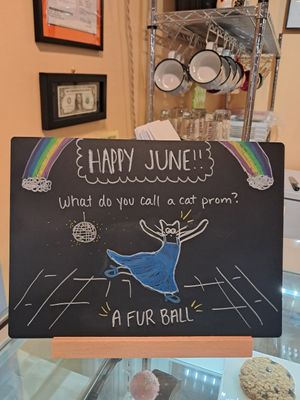 HAPPY JUNE!!
What do you call a cat prom?
A FUR BALL